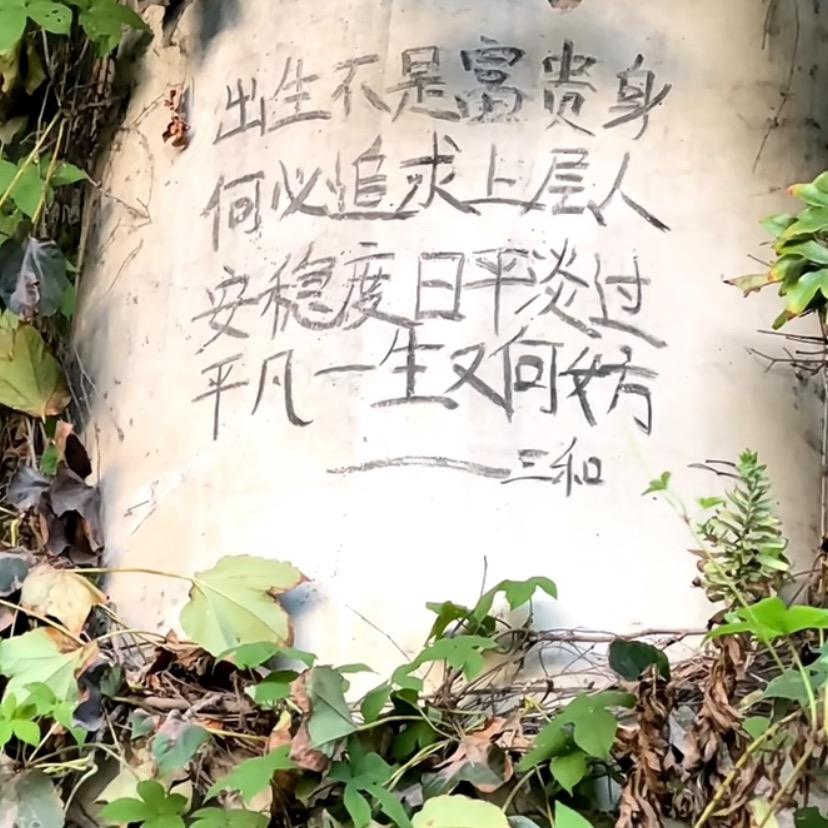 出生不是富贵身
何必追求上层人
安稳度日平淡过
平凡一生又何妨
——三和